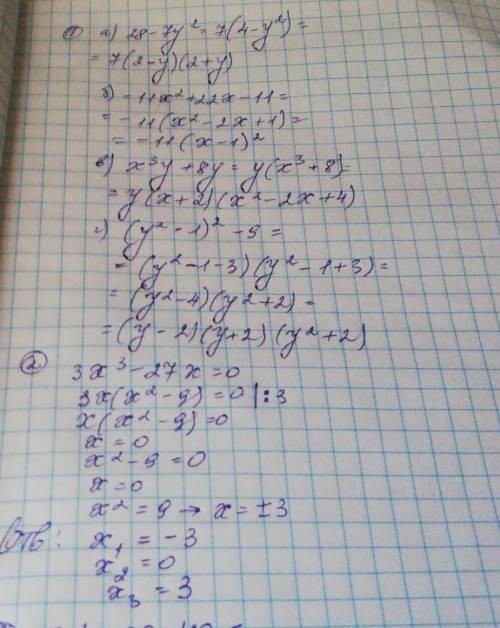 ① а) 28-7y²=7(4-y²)=
=7(2-y)(2+y)
б) -11x²+22x-11=
=-11(x²-2x+1)=
=-11(x-1)²
в) x³y+8y=y(x³+8)=
=y(x+2)(x²-2x+4)
г) (y²-1)²-9=
=(y²-1-3)(y²-1+3)=
=(y²-4)(y²+2)=
=(y-2)(y+2)(y²+2)
② 3x³-27x=0
3x(x²-9)=0 |:3
x(x²-9)=0
x=0
x²-9=0
x=0
x²=9→x=±3
Отв: x₁=-3
x₂=0
x₃=3